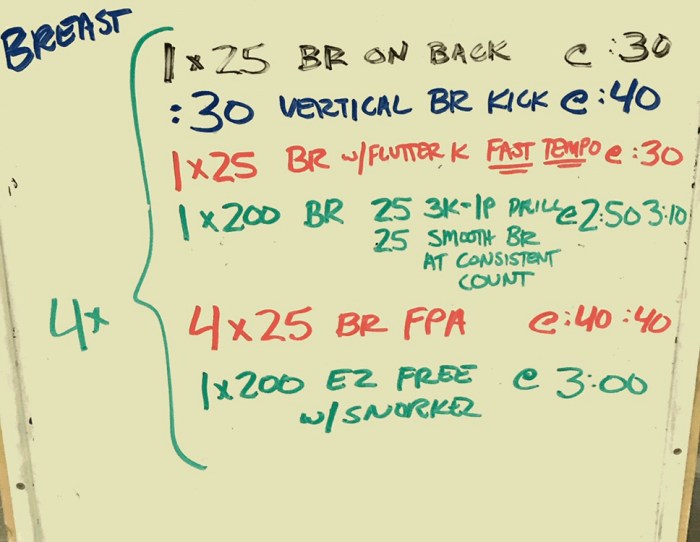 BREAST
1 x 25 BR ON BACK @ :30
:30 VERTICAL BR KICK @ :40
1 x 25 BR w/FLUTTER K FAST TEMPO @ :30
1 x 200 BR 25 3K-1P DRILL @ 2:50 3:10
25 SMOOTH BR
AT CONSISTENT
COUNT
4x
4 x 25 BR FPA @ :40 :40
1 x 200 EZ FREE @ 3:00
w/SNORKEL